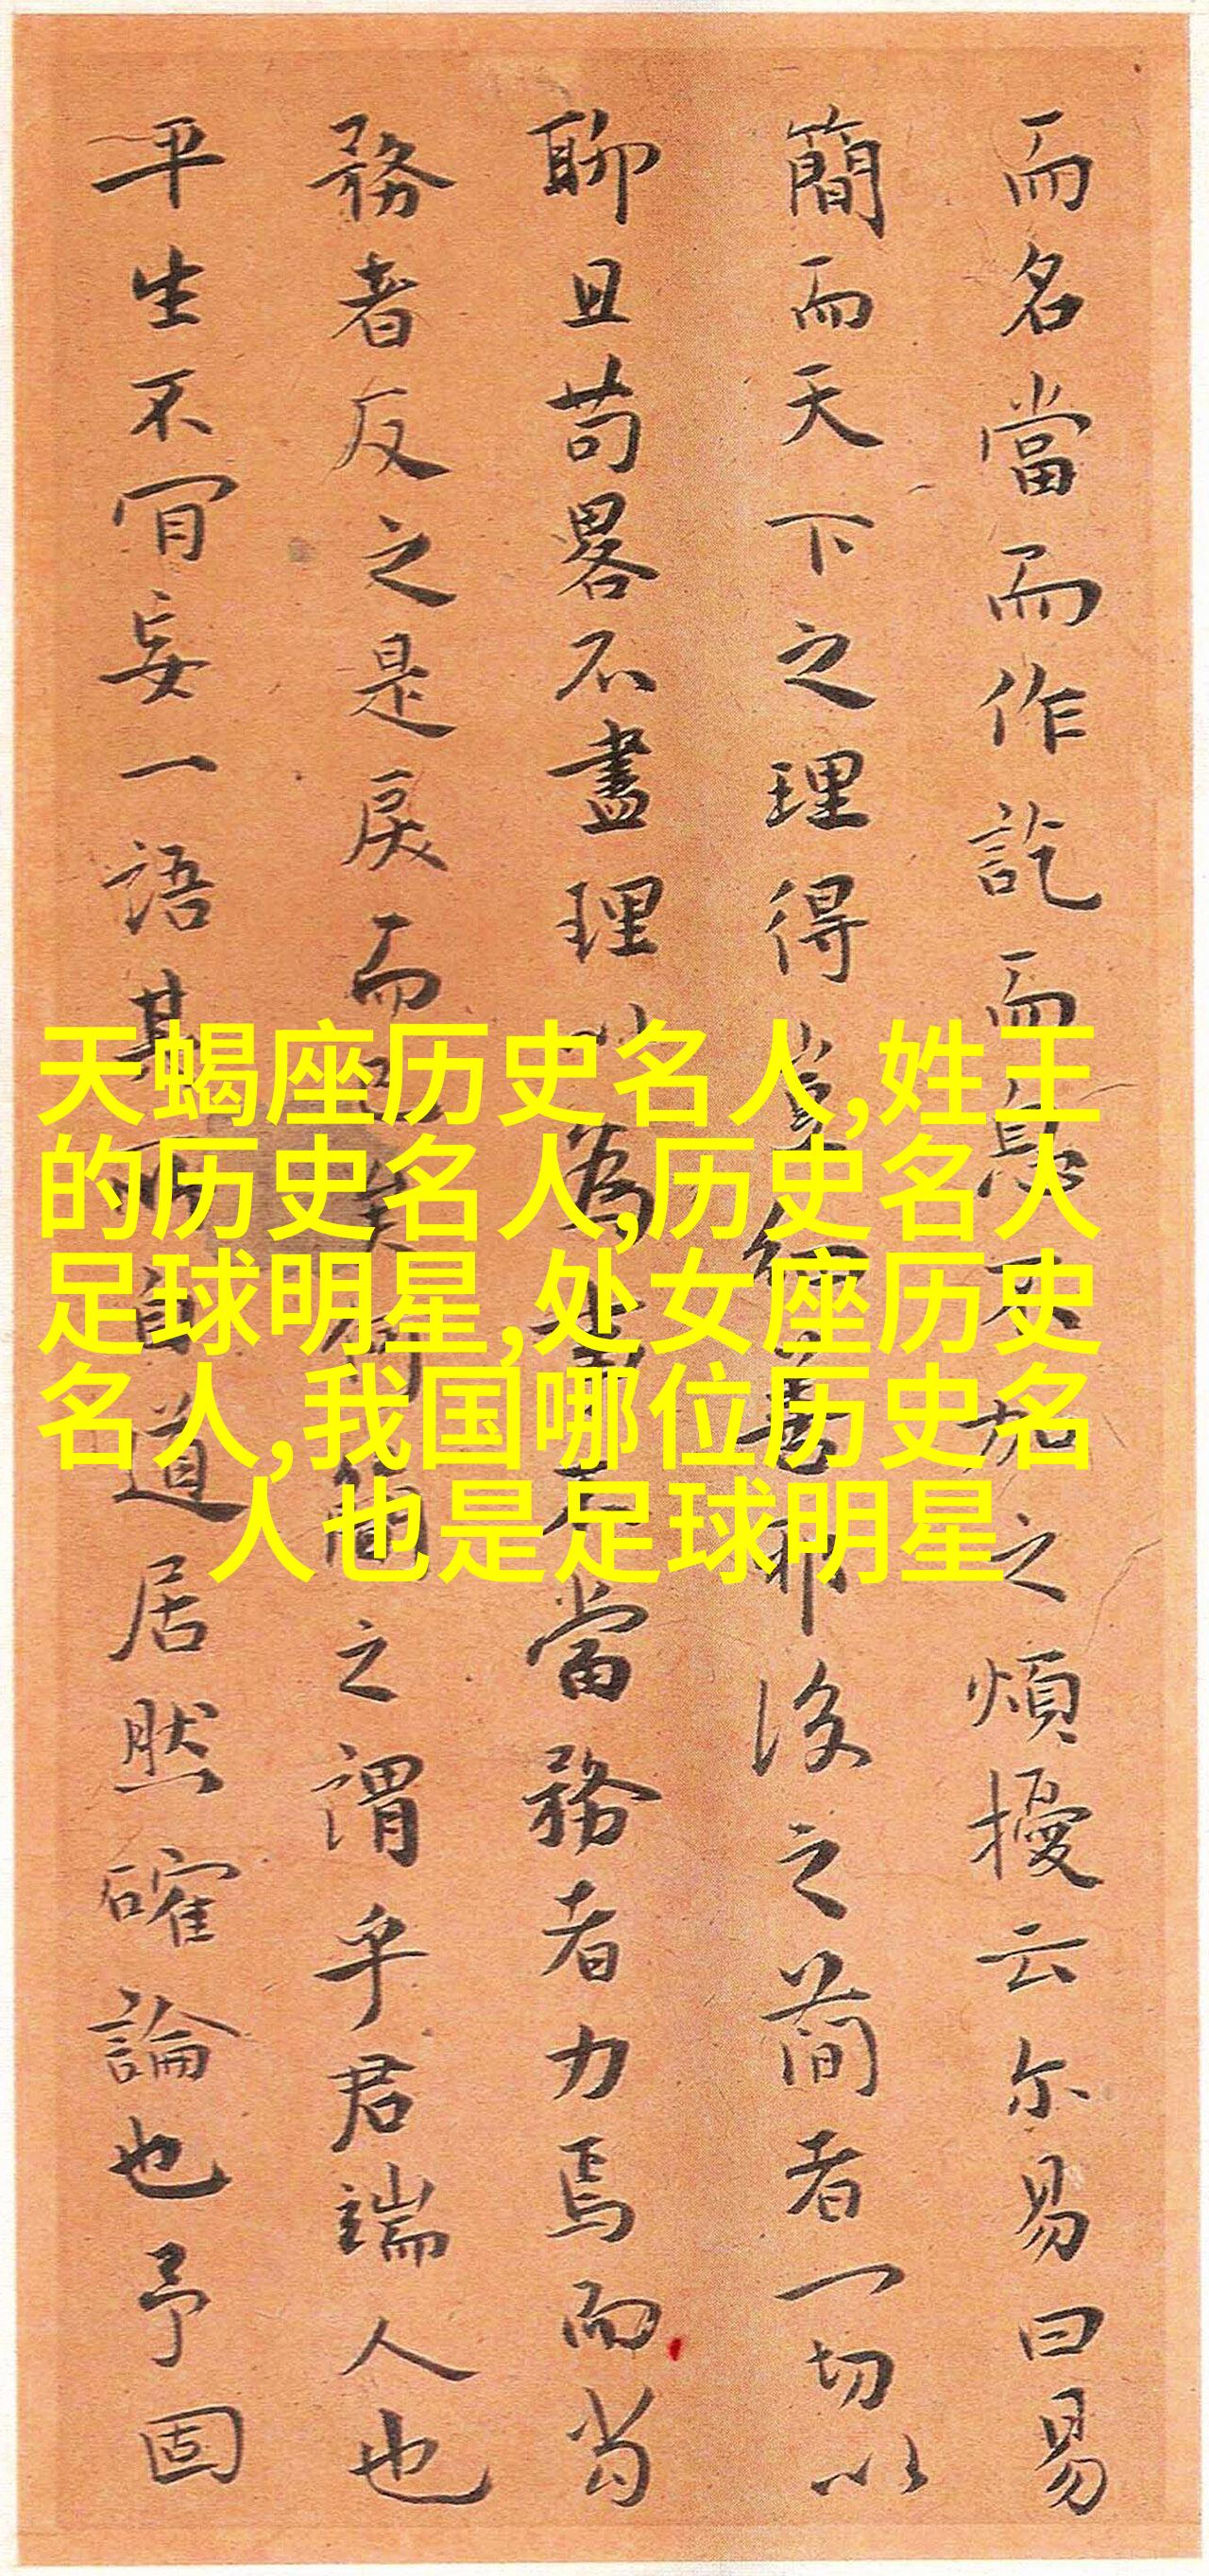 天蝎座历史名人,姓王
的历史名人,历史名人
足球明星,处女座历史
名人,我国哪位历史名
人也是足球明星
而名當而作訖而息不加之煩擾云尔易曰易
簡而天下之理得豈細耶後之简者一切以
聊且苟畧不盡理以為不當務者力焉而当
務者反之是戾而已矣何簡之謂乎君端人也
平生不肎妄一語其所自道居然確論也予固